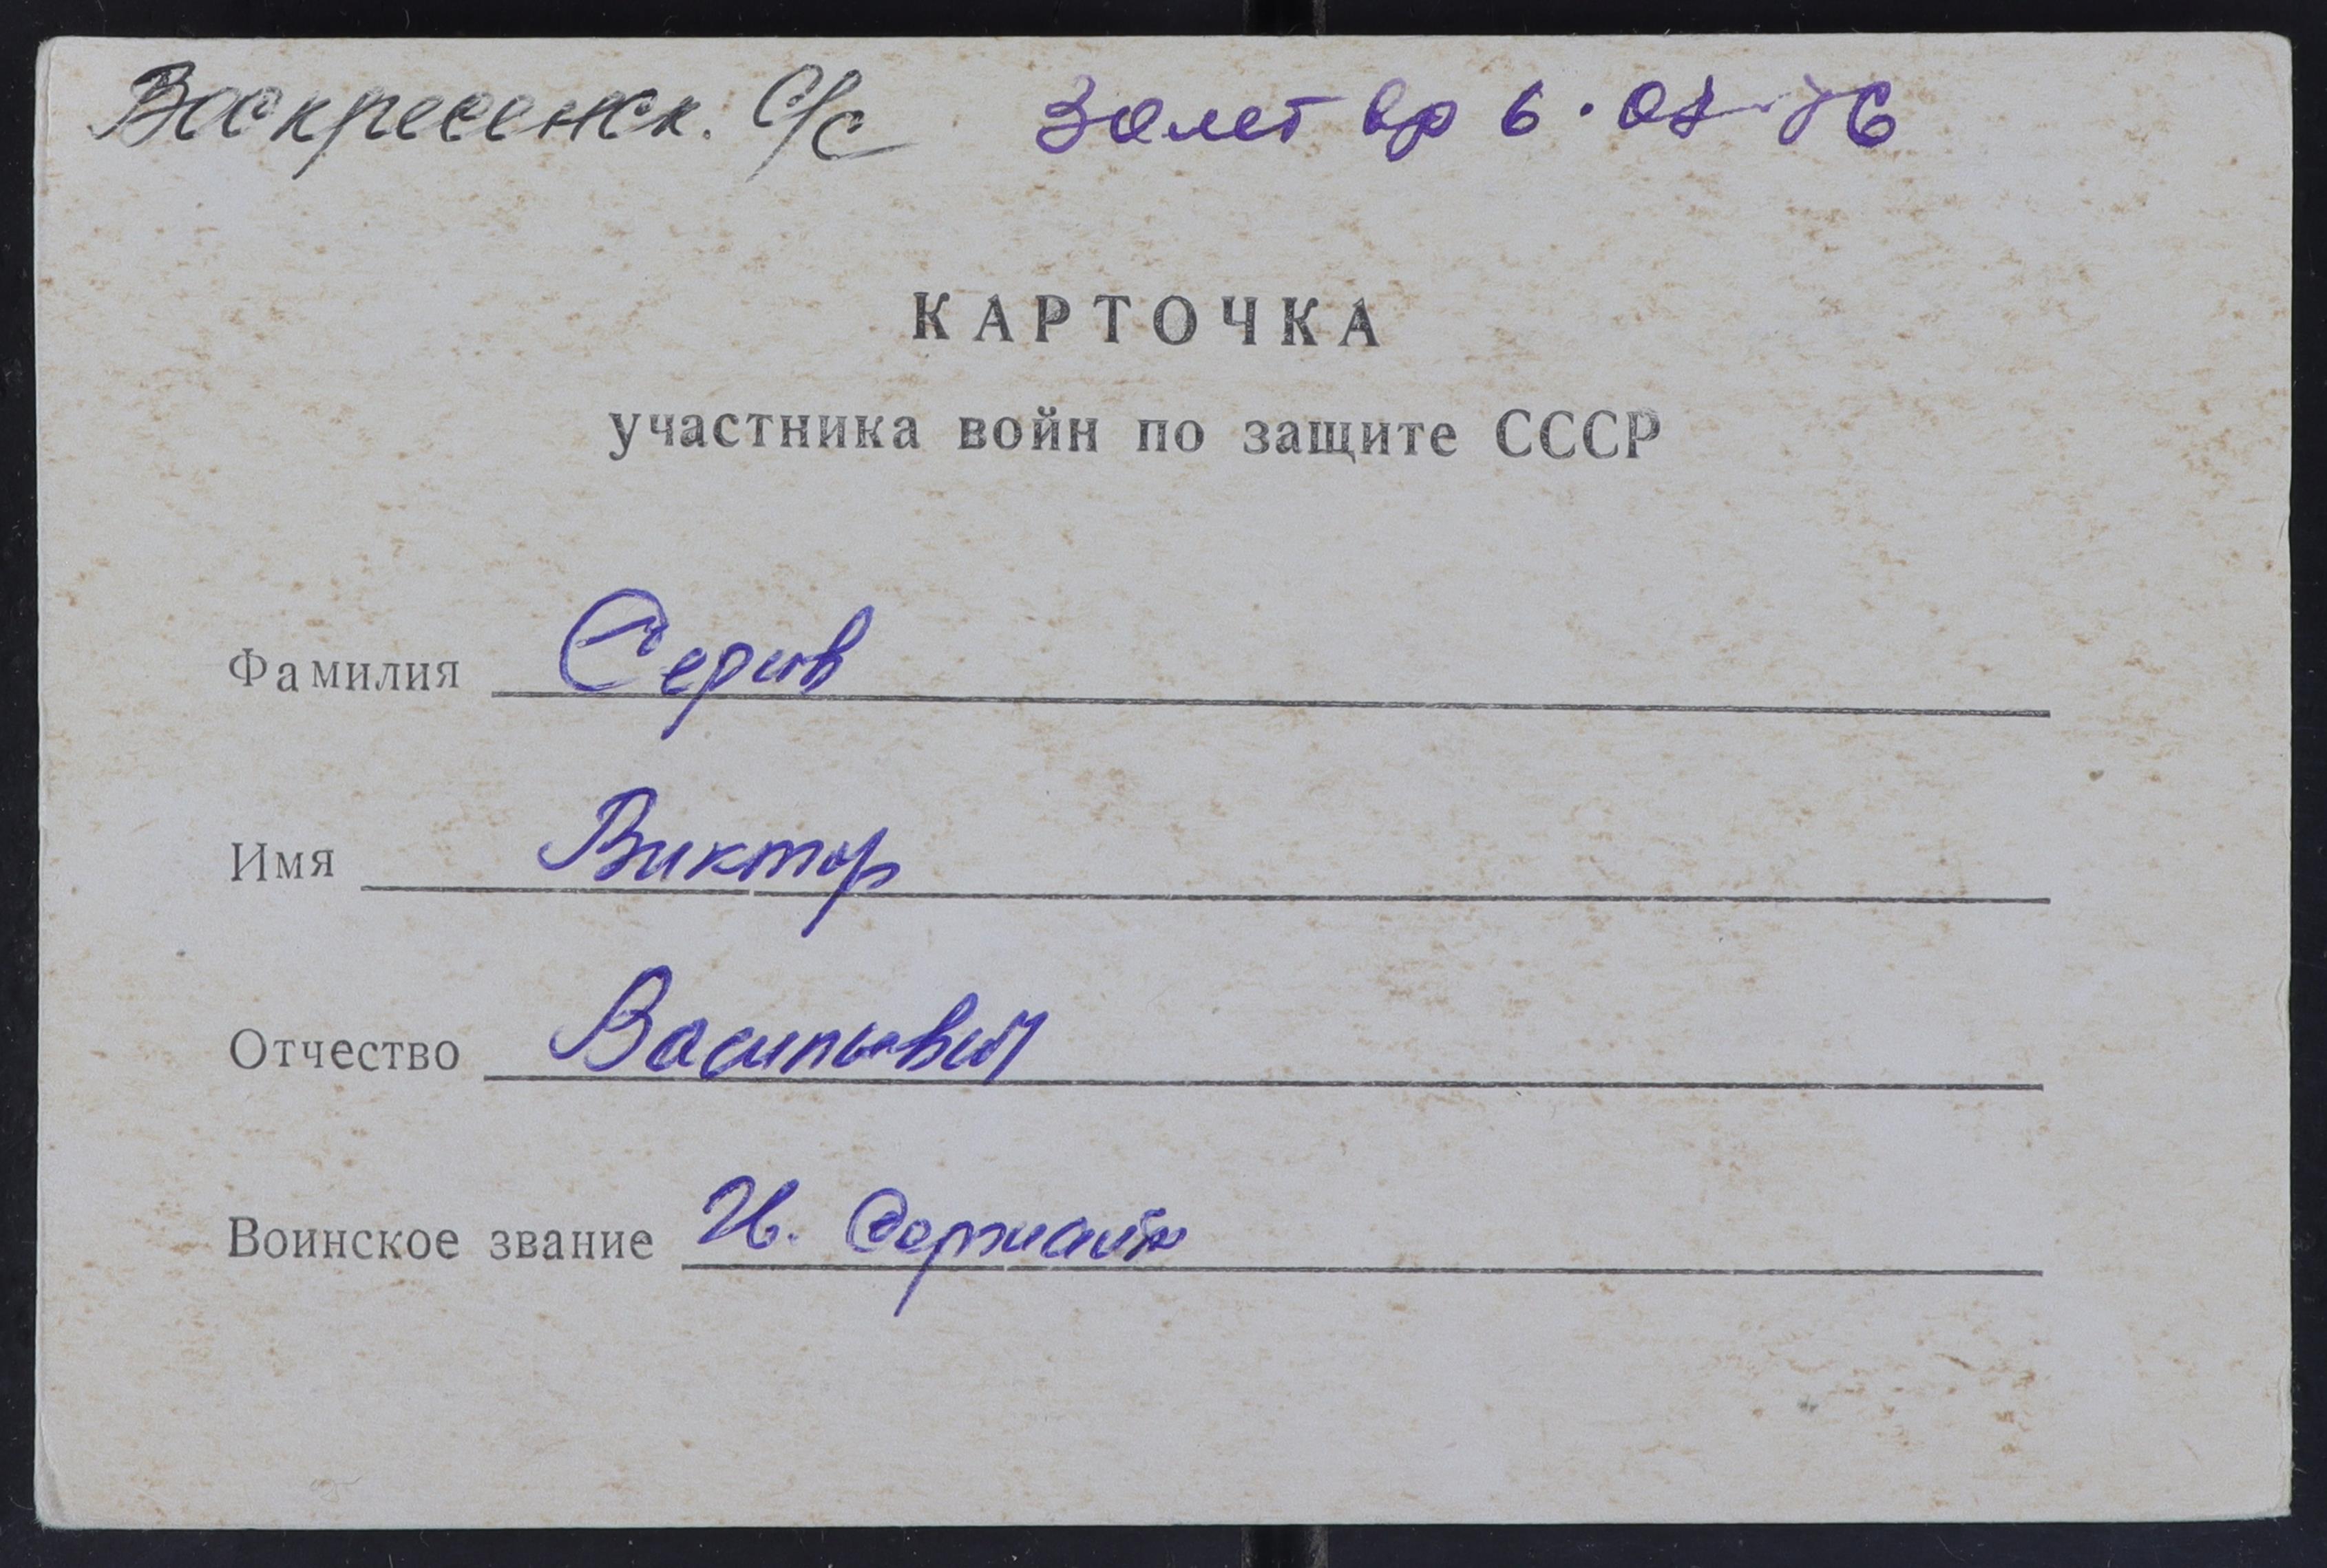 Воскресенск. С/с 30 лет вр 6.07.76
КАРТОЧКА
участника войн по защите СССР
Фамилия Серов
Имя Виктор
Отчество Васильевич
Воинское звание Гв. Сержант